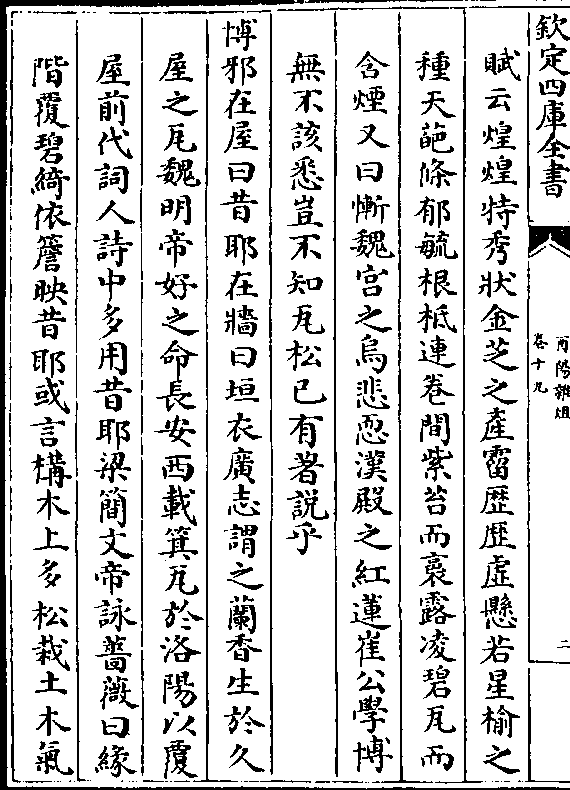 欽定四庫全書
酉陽雜俎
卷十九
二
賦云煌煌特秀狀金芝之產霤歴歴虛懸若星榆之
種天葩條郁毓根柢連卷間紫苔而裛露凌碧瓦而
含煙又曰慚魏宮之烏悲恧漢殿之紅蓮崔公學博
無不該悉豈不知瓦松已有著説乎
博邪在屋曰昔耶在牆曰垣衣廣志謂之蘭香生於久
屋之瓦魏明帝好之命長安西載箕瓦於洛陽以覆
屋前代詞人詩中多用昔耶梁簡文帝詠薔薇曰緣
階覆碧綺依簷映昔耶或言構木上多松栽土木氣